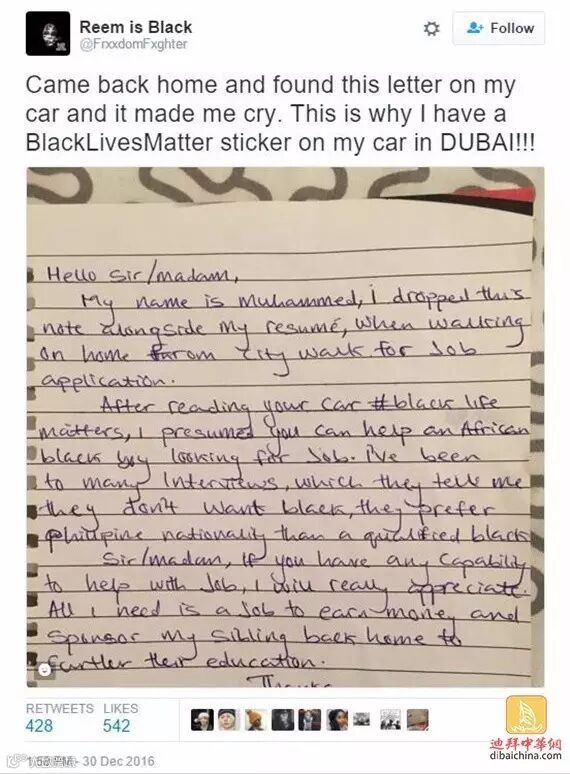 Reem is Black
@FrxxdomFxghter
Follow
Came back home and found this letter on my
car and it made me cry. This is why I have a
BlackLivesMatter sticker on my car in DUBAI!!!
Hello Sir/madam,
My name is Muhammed, i dropped this
note alongside my resumé, when walking
on home from City walk for Job
application.
After reading your car #black life
matters, i presumed you can help an African
black boy looking for Job. i've been
to many Interviews, which they tell me
they don't want black, they prefer
philipine nationality than a qualified black
Sir/madam, if you have any Capability
to help with Job, I will really appreciate.
All i need is a Job to earn money and
Sponsor my Sibling back home to
further their education.
RETWEETS LIKES
428 542
- 30 Dec 2016
迪拜中華網
dibaichina.com